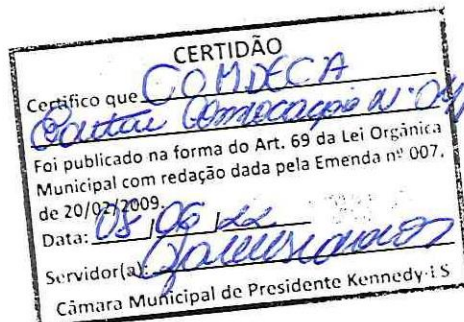 CERTIDÃO
Certifico que COMDECA
Convocação Nº 04
Foi publicado na forma do Art. 69 da Lei Orgânica
Municipal com redação dada pela Emenda nº 007,
de 20/02/2009.
Data: 08/06/22
Servidor(a):
Câmara Municipal de Presidente Kennedy-ES